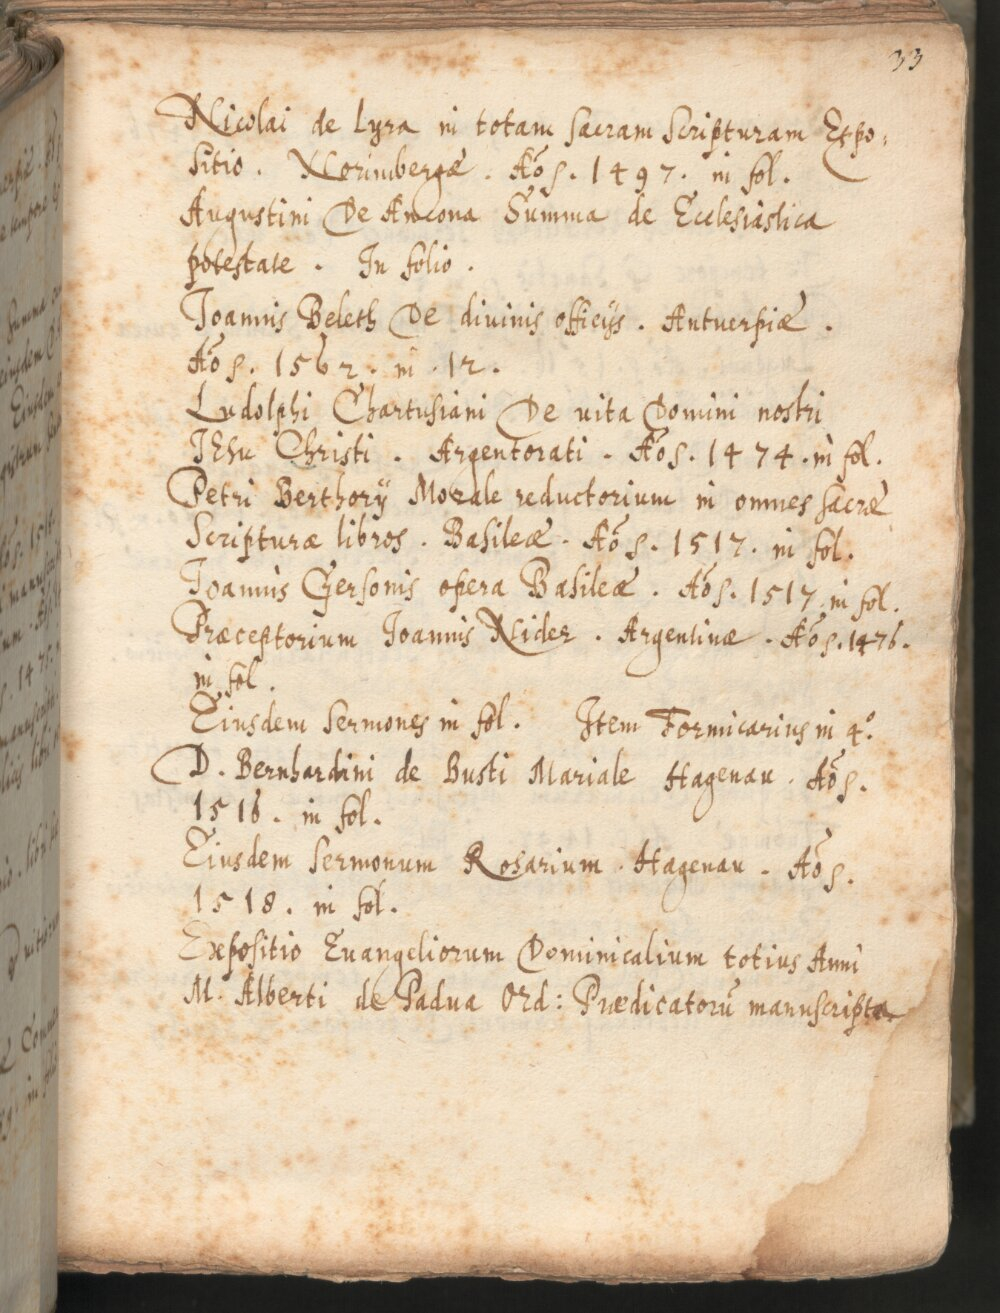 33
Nicolai de Lyra in totam sacram scripturam Expo:
sitio. Norimbergæ. Aõs. 1497. in fol.
Augustini De Ancona Summa de Ecclesiastica
potestate. In folio.
Joannis Beleth De diuinis officijs. Antuerpiæ.
Aõs. 1562. in .12.
Ludolphi Chartusiani De uita Domini nostri
JEhu Christi. Argentorati. Aõs. 1474. in fol.
Petri Berthorij Morale reductorium in omnes sacræ
Scripturæ libros. Basileæ. Aõs. 1517. in fol.
Joannis Gersonis opera Basileæ. Aõs. 1517. in fol.
Præceptorium Joannis Nider. Argentinæ. Aõs. 1476.
in fol.
Eiusdem sermones in fol. Item Formicarius in 4º
D. Bernhardini de Busti Mariale Hagenau. Aõs.
1516. in fol.
Eiusdem sermonum Rosarium. Hagenau. Aõs.
1518. in fol.
Expositio Euangeliorum Dominicalium totius Anni
M. Alberti de Padua Ord: Prædicatorũ manuscripta